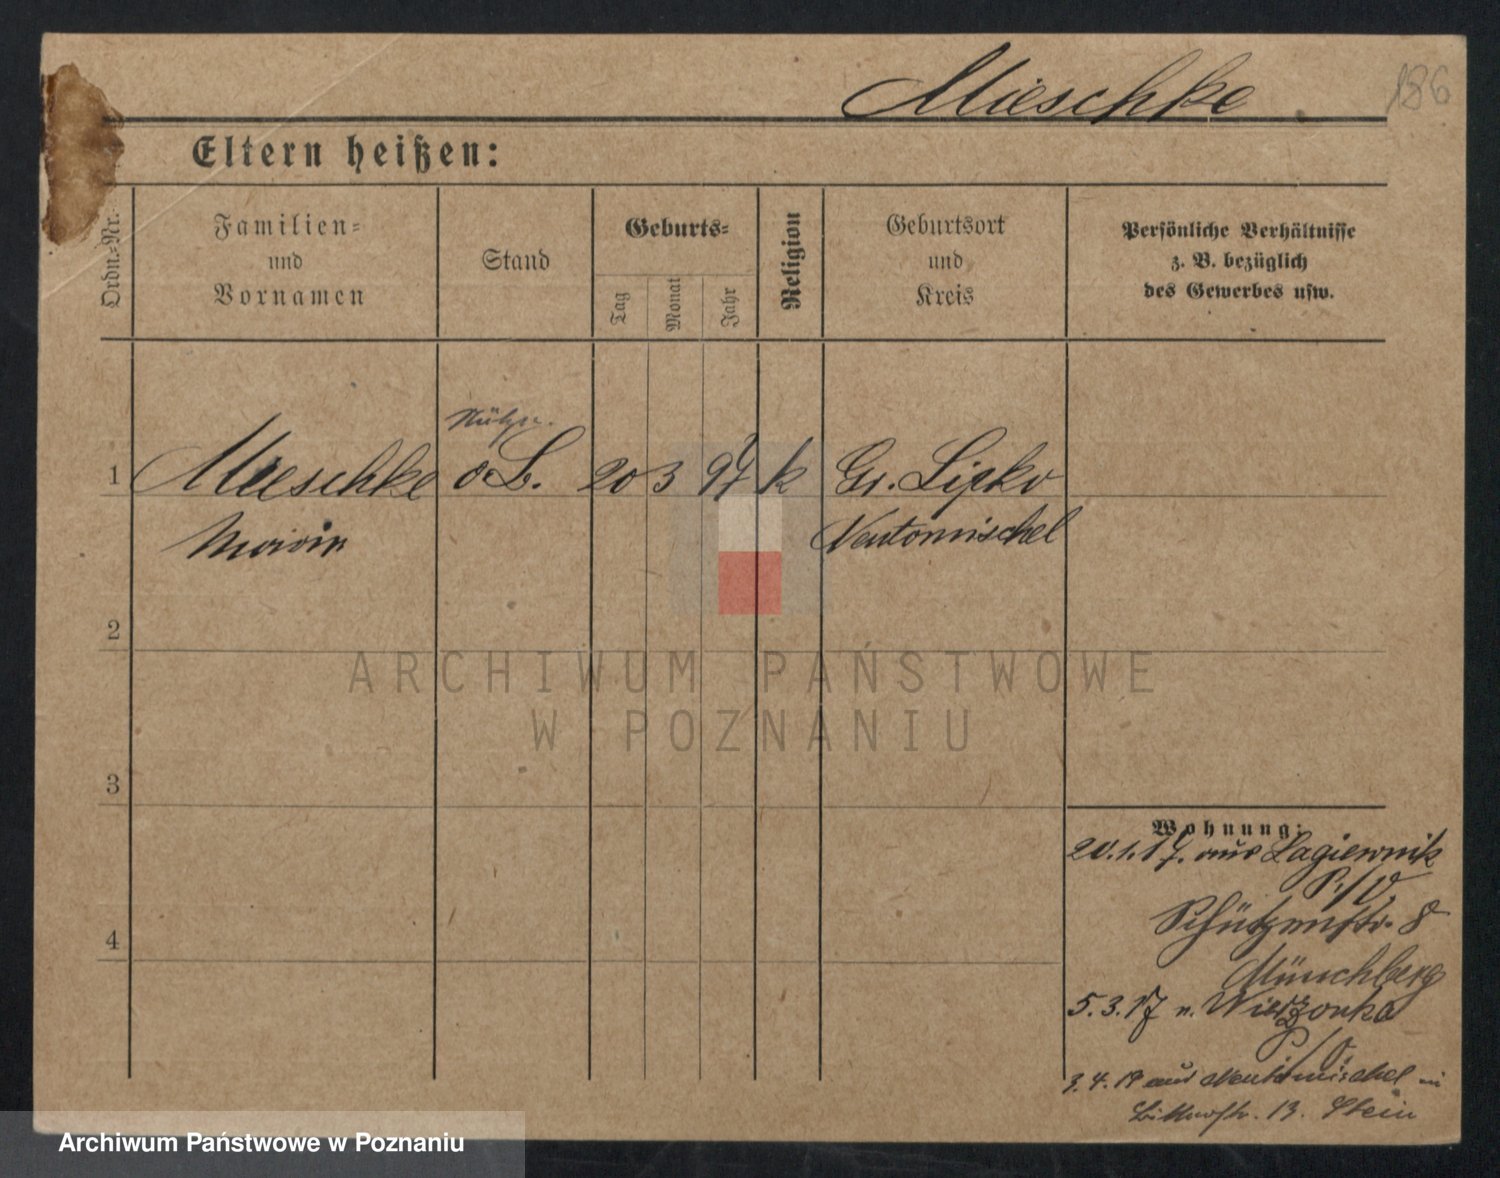 Mieschke
186
Eltern heißen:
Ordn.-Nr.
Familien-
und
Vornamen
Stand
Geburts-
Tag
Monat
Jahr
Religion
Geburtsort
und
Kreis
Persönliche Verhältnisse
z. B. bezüglich
des Gewerbes usw.
1
Mieschke
o L.
20 3 97
k
Gr. Lipke
Neutomischel
2
3
4
Wohnung:
20.1.17. aus Lagiewnik
Schützenstr. 8
Münchberg
5.3.17 n. Wierzonka
3.4.19 aus Neutomischel in
13. Stein
ARCHIWUM PAŃSTWOWE
W POZNANIU
Archiwum Państwowe w Poznaniu